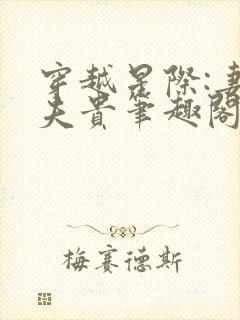 穿越星際:妻
夫貴筆趣閣
梅賽德斯